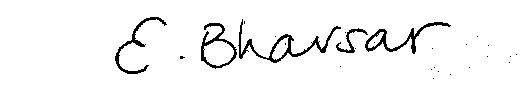 E. Bhavsar